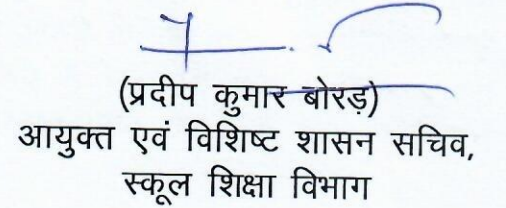 (प्रदीप कुमार बोरड़)
आयुक्त एवं विशिष्ट शासन सचिव,
स्कूल शिक्षा विभाग